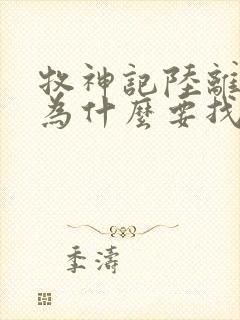 牧神記陸離
為什麼要找
季濤